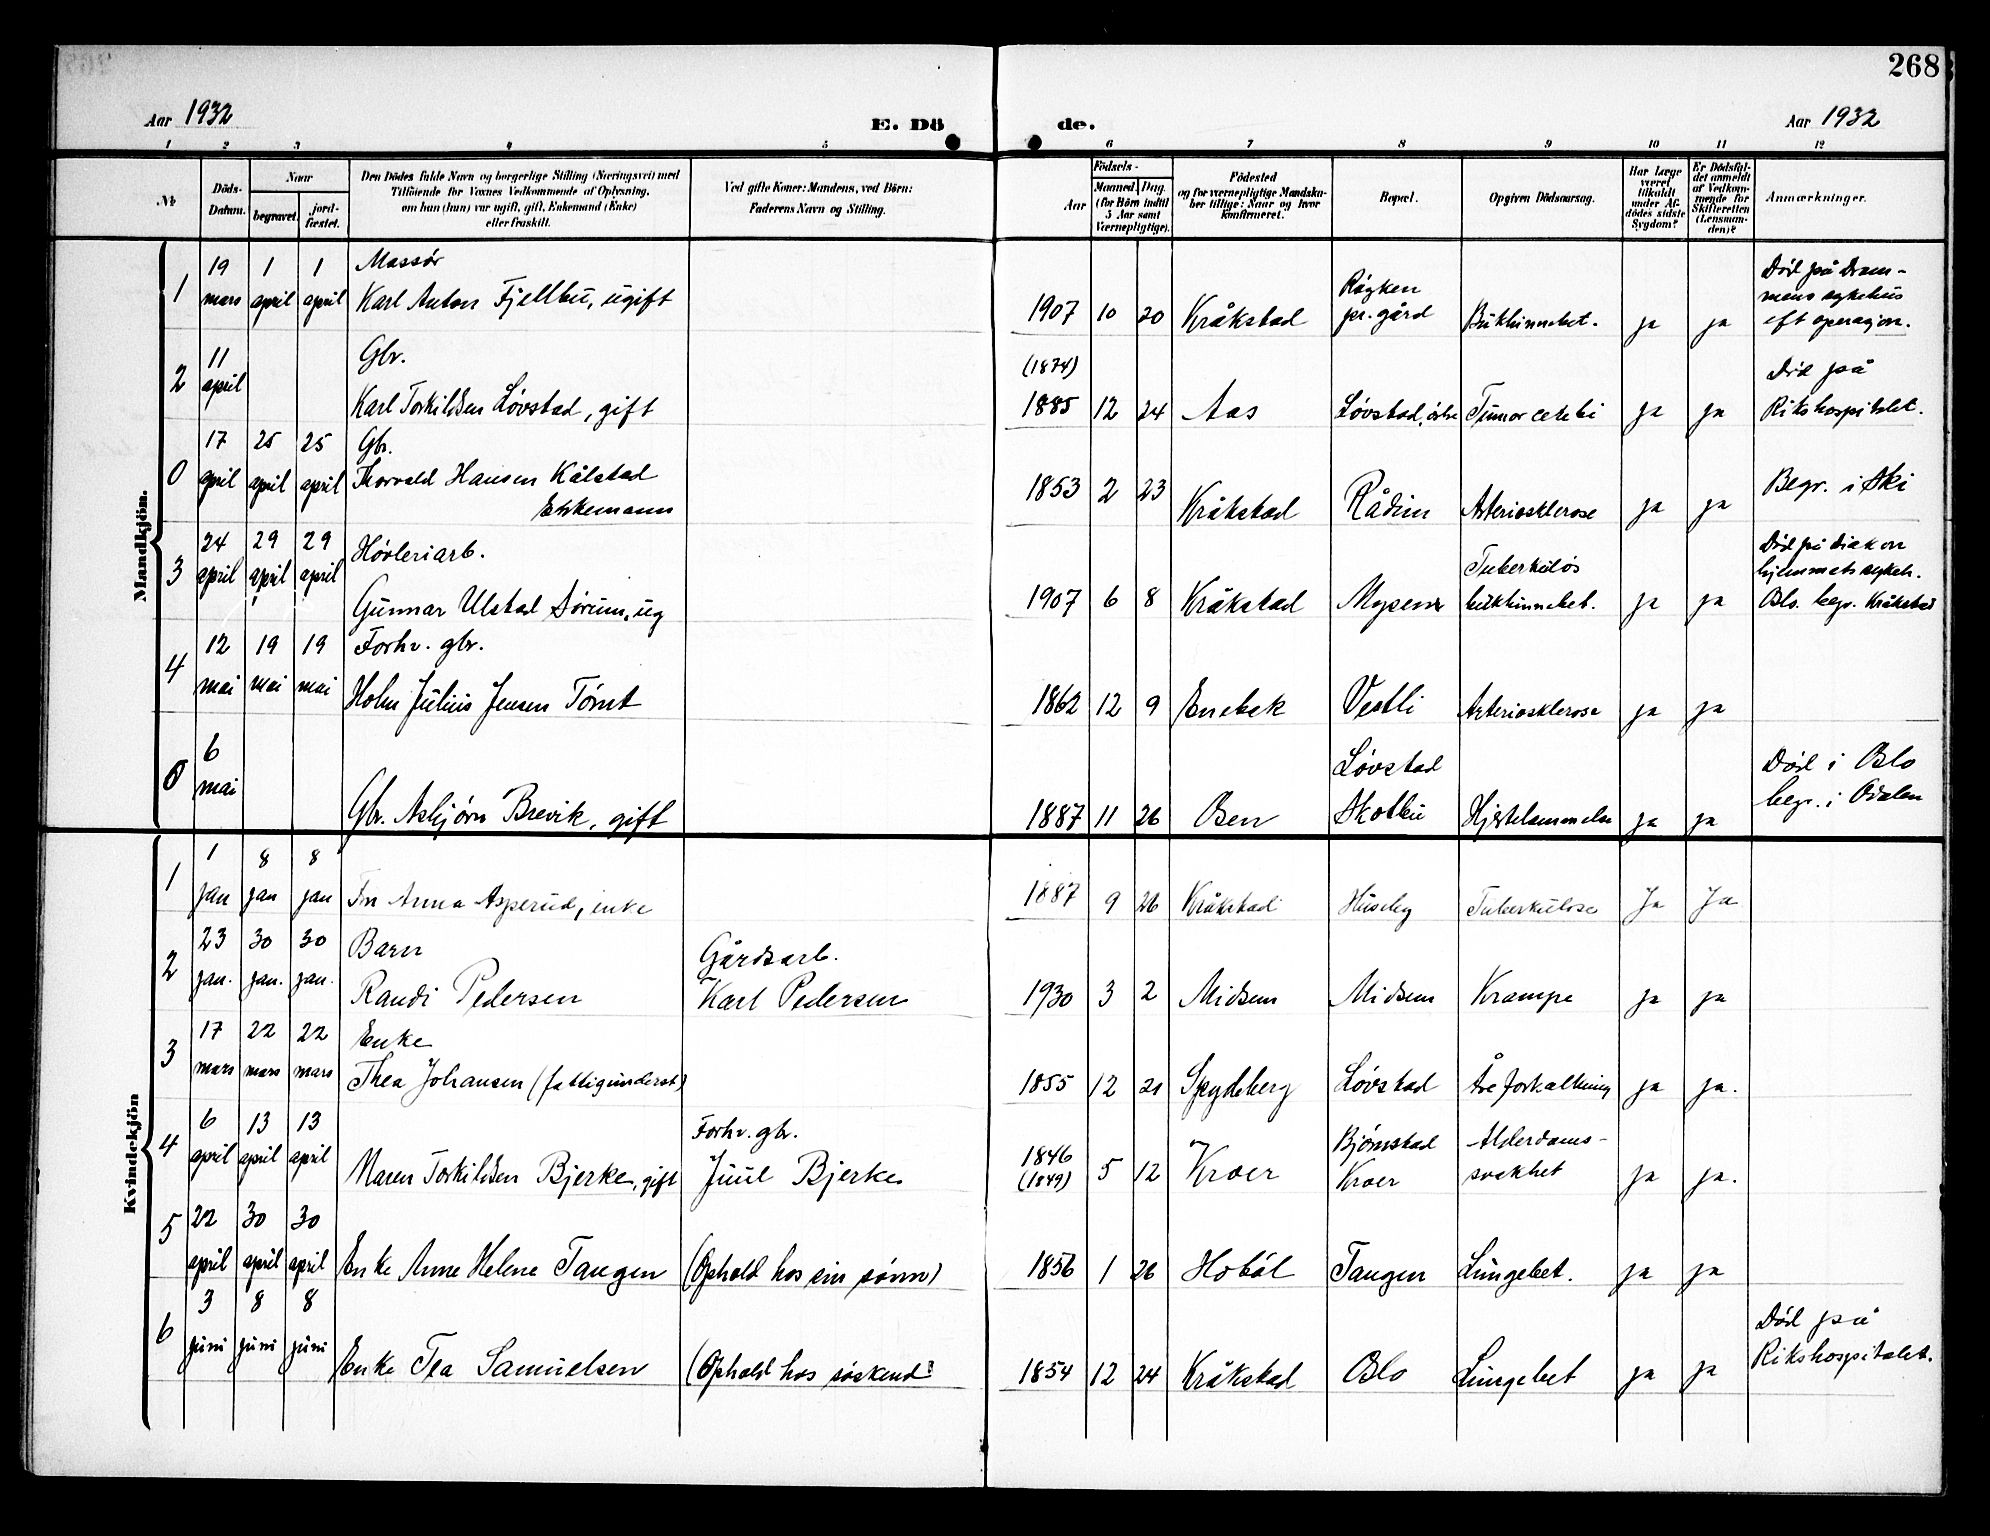 268
Aar 1932
E. Dö
de.
Aar 1932
1 2 3 4 5 6 7 8 9 10 11 12
№
Döds-
Datum.
Naar
begravet.
jord-
fæstet.
Den Dödes fulde Navn og borgerlige Stilling (Næringsvei) med
Tilföiende for Voxnes Vedkommende af Oplysning,
om han (hun) var ugift, gift, Enkemand (Enke)
eller fraskilt.
Ved gifte Koner: Mandens, ved Börn:
Faderens Navn og Stilling.
Födsels-
Aar
Maaned. Dag.
(for Börn indtil
5 Aar samt
Værnepligtige).
Födested
og for værnepligtige Mandska-
ber tillige: Naar og hvor
konfirmeret.
Bopæl.
Opgiven Dödsaarsag.
Har Læge
været
tilkaldt
under Af-
dödes sidste
Sygdom?
Er Dödsfal-
det anmeldt
af Vedkom-
mende for
Skifteretten
(Lensman-
den)?
Anmærkninger.
Mandkjön.
1 19 mars 1 april 1 april Massør
Karl Anton Fjellbu, ugift
1907 10 20 Kråkstad Røyken pr.gård Bukhinnebet. ja ja Død på Dram-
mens sykehus
eft operasjon.
2 11 april Gbr.
Karl Torkildsen Løvstad, gift
(1874)
1885 12 24 Aas Løvstad, østre Tumor cerebri ja ja Død på
Rikshospitalet.
0 17 april 25 april 25 april Gbr.
Thorvald Hansen Kålstad
Enkemann
1853 2 23 Kråkstad Rådim Arteriosklerose ja ja Begr. i Ski
3 24 april 29 april 29 april Høvleriarb.
Gunnar Ulstad Sørum, ug
1907 6 8 Kråkstad Mysen Tuberkuløs
bukhinnebet. ja ja Død på diakon
hjemmets sykeh.
Oslo. begr. Kråkstad
4 12 mai 19 mai 19 mai Forhv. gbr.
Holm Julius Jensen Tømt
1862 12 9 Enebak Vestli Arteriosklerose ja ja
0 6 mai
Gbr. Asbjørn Brevik, gift
1887 11 26 Osen Løvstad
Skotbu Hjertelammelse ja ja Død i Oslo
begr. i Odalen
Kvindekjön
1 1 jan 8 jan 8 jan
Fru Anna Asperud, enke
1887 9 26 Kråkstad Huseby Tuberkulose Ja Ja
2 23 jan. 30 jan. 30 jan. Barn
Randi Pedersen
Gårdsarb.
Karl Pedersen
1930 3 2 Midsem Midsem Krampe ja ja
3 17 mars 22 mars 22 mars Enke
Thea Johansen (fattigunderst)
1855 12 21 Spydeberg Løvstad Åreforkalkning ja ja.
4 6 april 13 april 13 april
Maren Torkildsen Bjerke, gift
Forhv. gbr.
Juul Bjerke
1846
(1849) 5 12 Kroer Bjørnstad
Kroer Alderdoms-
svakhet ja ja.
5 22 april 30 april 30 april
Enke Anne Helene Tangen (Ophold hos sin sønn)
1856 1 26 Hobøl Tangen Lungebet. ja ja
6 3 juni 8 juni 8 juni
Enke Tea Samuelsen (Ophold hos søskend
1854 12 24 Kråkstad Oslo Lungebet ja ja Død på
Rikshospitalet.